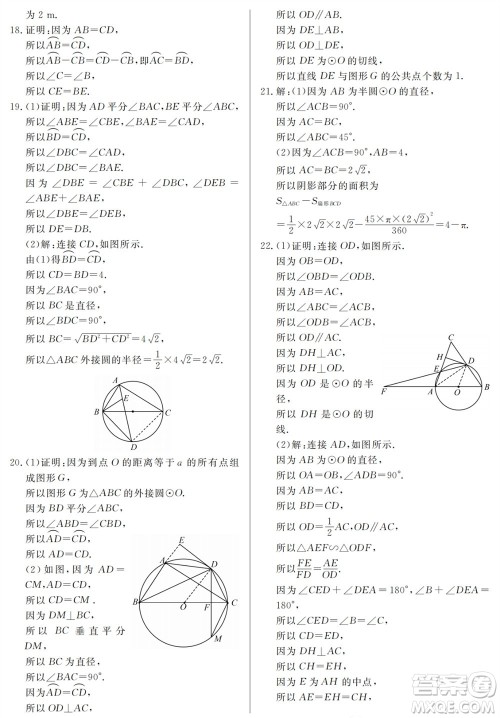 为 2 m.
18. 证明:因为 AB=CD,
所以 A͡B=C͡D,
所以 A͡B−C͡B=C͡D−C͡B,即A͡C=B͡D,
所以∠C=∠B,
所以 CE=BE.
19. (1)证明:因为 AD 平分∠BAC,BE 平分∠ABC,
所以∠ABE=∠CBE,∠BAE=∠CAD,
所以 B͡D=C͡D,
所以∠DBC=∠CAD,
所以∠DBC=∠BAE.
因 为 ∠DBE = ∠CBE + ∠DBC, ∠DEB =
∠ABE+∠BAE,
所以∠DBE=∠DEB,
所以 DE=DB.
(2)解:连接 CD,如图所示.
由(1)得B͡D=C͡D,
所以 CD=BD=4.
因为∠BAC=90°,
所以 BC 是直径,
所以∠BDC=90°,
所以 BC=√(BD²+CD²)=4√2,
所以△ABC 外接圆的半径=1/2×4√2=2√2.
A
E
B
C
D
20. (1)证明:因为到点 O 的距离等于 a 的所有点组
成图形 G,
所以图形 G 为△ABC 的外接圆⊙O.
因为 BD 平分∠ABC,
所以∠ABD=∠CBD,
所以 A͡D=C͡D,
所以 AD=CD.
(2)如图,因为 AD=
CM,AD=CD,
所以 CD=CM.
因为 DM⊥BC,
所以 BC 垂直平分
DM,
所以 BC 为直径,
所以∠BAC=90°.
因为A͡D=C͡D,
所以 OD⊥AC,
E
A
D
B
O
F
C
M
所以 OD∥AB.
因为 DE⊥AB,
所以 OD⊥DE,
所以 DE 为⊙O 的切线,
所以直线 DE 与图形 G 的公共点个数为 1.
21. 解:(1)因为 AB 为半圆⊙O 的直径,
所以∠ACB=90°.
因为 AC=BC,
所以∠ABC=45°.
(2)因为∠ABC=45°,∠ACB=90°,AB=4,
所以 BC=2√2,
所以阴影部分的面积为
S△ABC−S扇形BCD
=1/2×2√2×2√2−45×π×(2√2)²/360=4−π.
22. (1)证明:连接 OD,如图所示.
因为 OB=OD,
所以∠OBD=∠ODB.
因为∠ABC=∠ACB,
所以∠ODB=∠ACB,
所以 OD∥AC.
因为 DH⊥AC,
所以 DH⊥OD.
因为 OD 是⊙O 的半
径,
所以 DH 是⊙O 的切线.
C
H
E
D
F
A
O
B
(2)解:连接 AD,如图所示.
因为 AB 为⊙O 的直径,
所以∠ADB=90°,
所以 OA=OB,BD=CD,
所以 OD=1/2AC,OD∥AC,
所以△AEF∽△ODF,
所以FE/FD=AE/OD.
因为∠CED+∠DEA=180°,∠B+∠DEA=
180°,
所以∠CED=∠B=∠C,
所以 CD=ED.
因为 DH⊥EC,
所以 CH=EH.
因为 E 为 AH 的中点,
所以 AE=EH=CH,